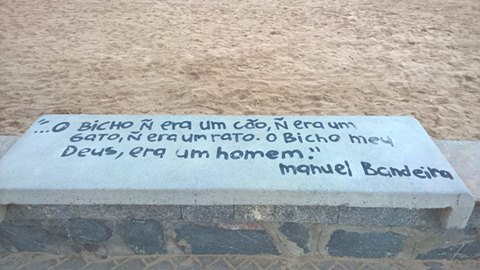 "...O BiCHO Ñ era um cão, Ñ era um
Gato, Ñ era um rato. O Bicho meu
Deus, era um homem."
manuel Bandeira